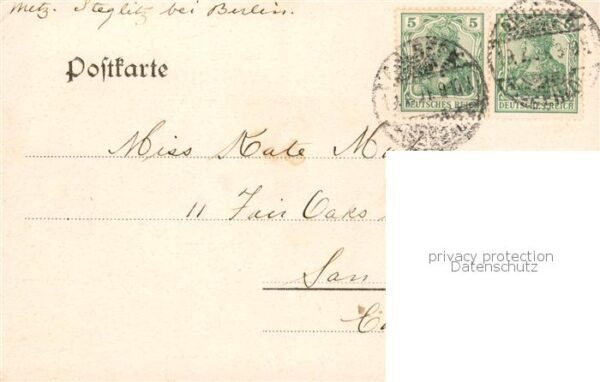 Metz. Steglitz bei Berlin.
5 5
5
DEUTSCHES REICH
DEUTSCHES REICH
Postkarte
Miss Kate
11 Fair Oaks
San
privacy protection
Datenschutz